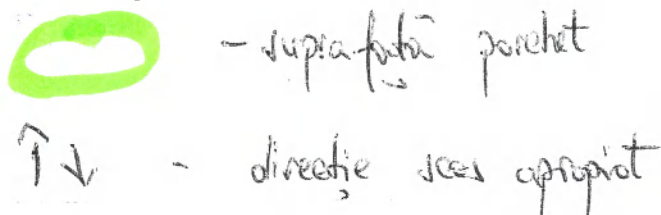 - suprafață parchet
↑↓ - direcție sces apropiat